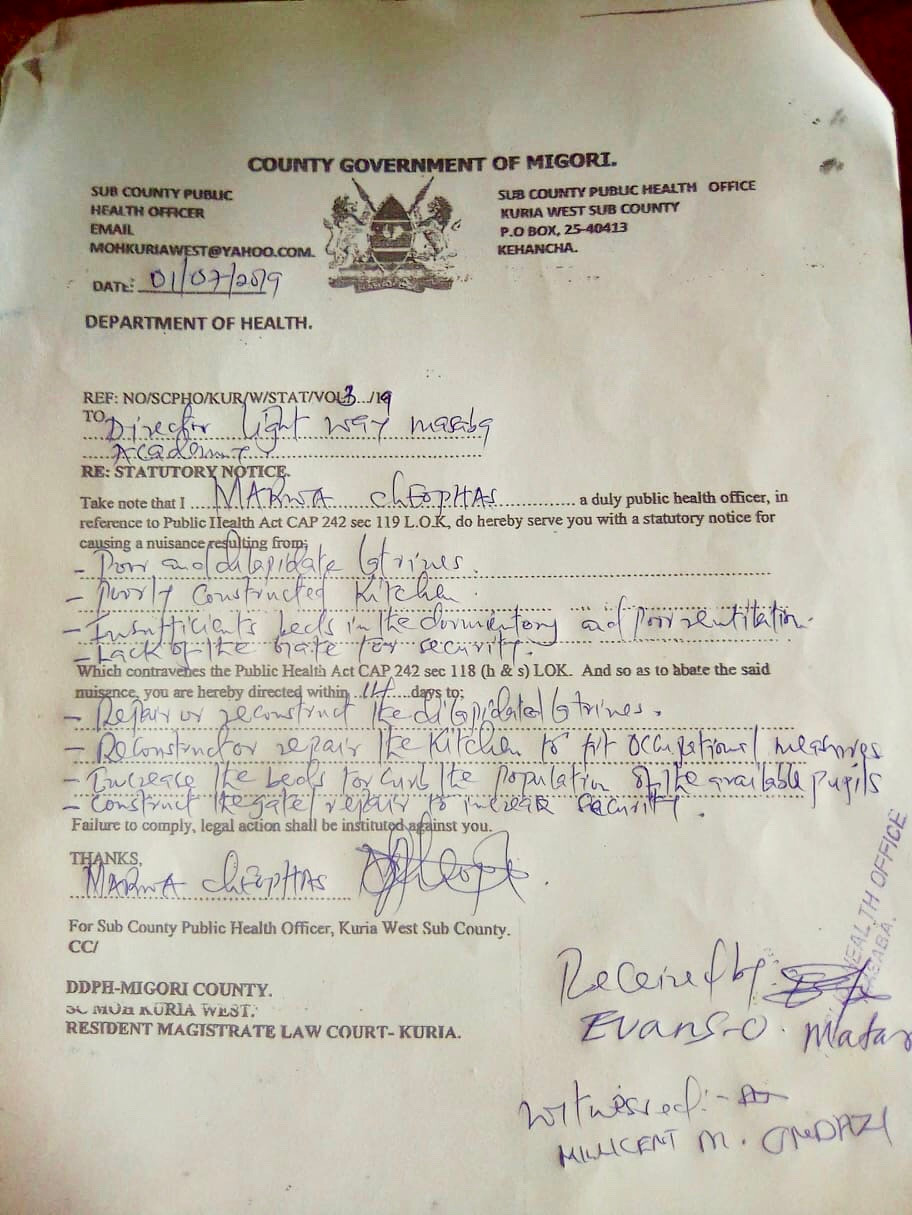 COUNTY GOVERNMENT OF MIGORI.
SUB COUNTY PUBLIC
HEALTH OFFICER
EMAIL
MOHKURIAWEST@YAHOO.COM.
DATE: 01/07/2019
SUB COUNTY PUBLIC HEALTH OFFICE
KURIA WEST SUB COUNTY
P.O BOX, 25-40413
KEHANCHA.
DEPARTMENT OF HEALTH.
REF: NO/SCPHO/KUR/W/STAT/VOL3.../19
TO Director light way masaba
Academy
RE: STATUTORY NOTICE.
Take note that I MARWA ChEOPHAS a duly public health officer, in
reference to Public Health Act CAP 242 sec 119 L.O.K, do hereby serve you with a statutory notice for
causing a nuisance resulting from;
- Poor and dilapidate latrines.
- Poorly constructed Kitchen.
- Insufficients beds in the dormentory and poor ventitation.
- Lack of the gate for security.
Which contravenes the Public Health Act CAP 242 sec 118 (h & s) LOK. And so as to abate the said
nuisence, you are hereby directed within 14 days to;
- Repair or reconstruct the dilapidated latrines.
- Reconstruct or repair the Kitchen to fit occupational measures
- Increase the beds for curb the population of the available pupils
- Construct the gate/repair to increase security.
Failure to comply, legal action shall be instituted against you.
THANKS,
MARWA ChEOPHAS
For Sub County Public Health Officer, Kuria West Sub County.
CC/
DDPH-MIGORI COUNTY.
SC MOH KURIA WEST.
RESIDENT MAGISTRATE LAW COURT- KURIA.
HEALTH OFFICE
MASABA.
Received by:
Evans-O. Matar
Witnessed:-
MILLICENT M.